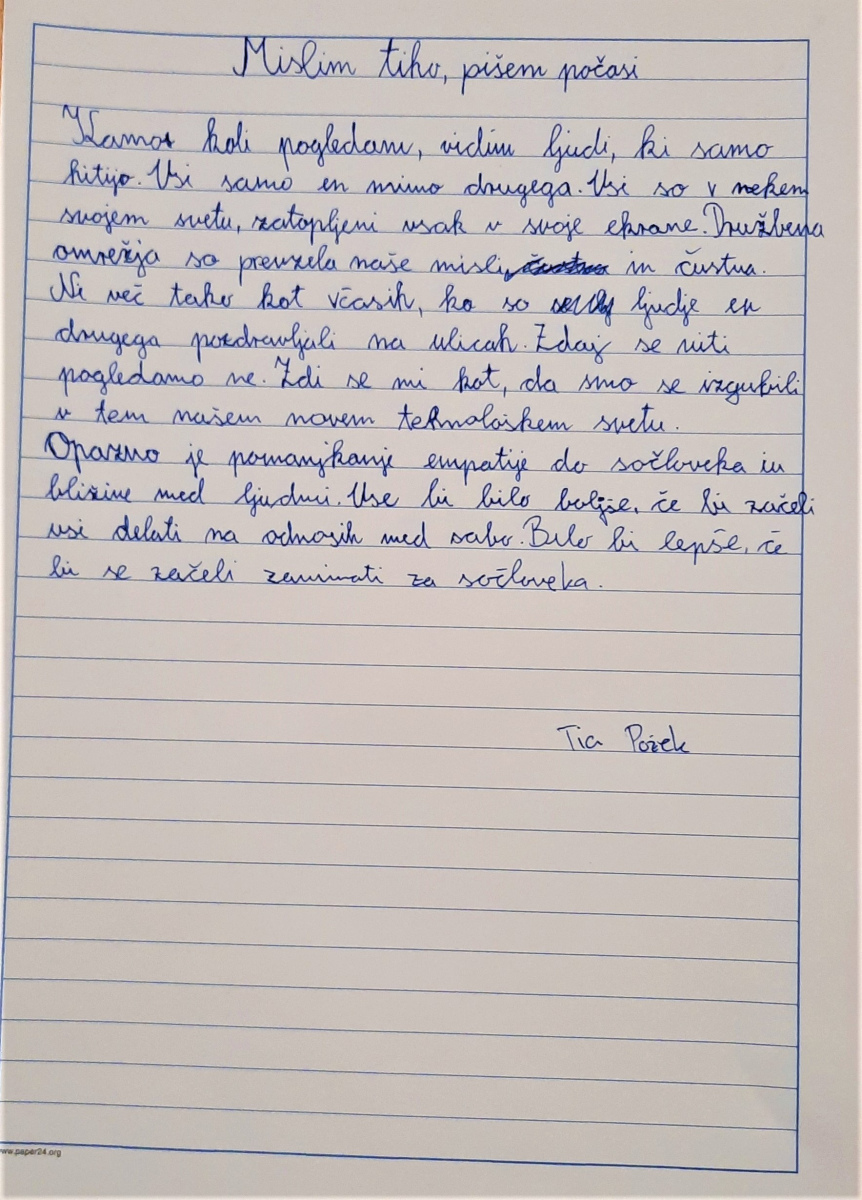 Mislim tiho, pišem počasi
Kamor koli pogledam, vidim ljudi, ki samo
hitijo. Vsi samo en mimo drugega. Vsi so v nekem
svojem svetu, zatopljeni vsak v svoje ekrane. Družbena
omrežja so prevzela naše misli in čustva.
Ni več tako kot včasih, ko so ljudje en
drugega pozdravljali na ulicah. Zdaj se niti
pogledamo ne. Zdi se mi kot, da smo se izgubili
v tem našem novem tehnološkem svetu.
Opazno je pomanjkanje empatije do sočloveka in
bližine med ljudmi. Vse bi bilo boljše, če bi začeli
vsi delati na odnosih med sabo. Bilo bi lepše, če
bi se začeli zanimati za sočloveka.
Tia Požek
www.paper24.org